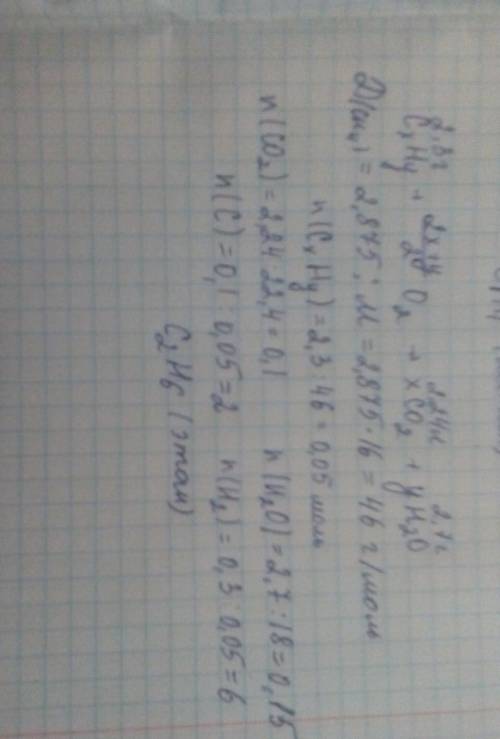 2,3г 2,24л 2,7г
CxHy + 2x+y/2 O2 → xCO2 + yH2O
D(CH4) = 2,875; M = 2,875·16 = 46 г/моль
n(CxHy) = 2,3:46 = 0,05 моль
n(CO2) = 2,24:22,4 = 0,1 n(H2O) = 2,7:18 = 0,15
n(C) = 0,1:0,05 = 2 n(H2) = 0,3:0,05 = 6
C2H6 (этан)